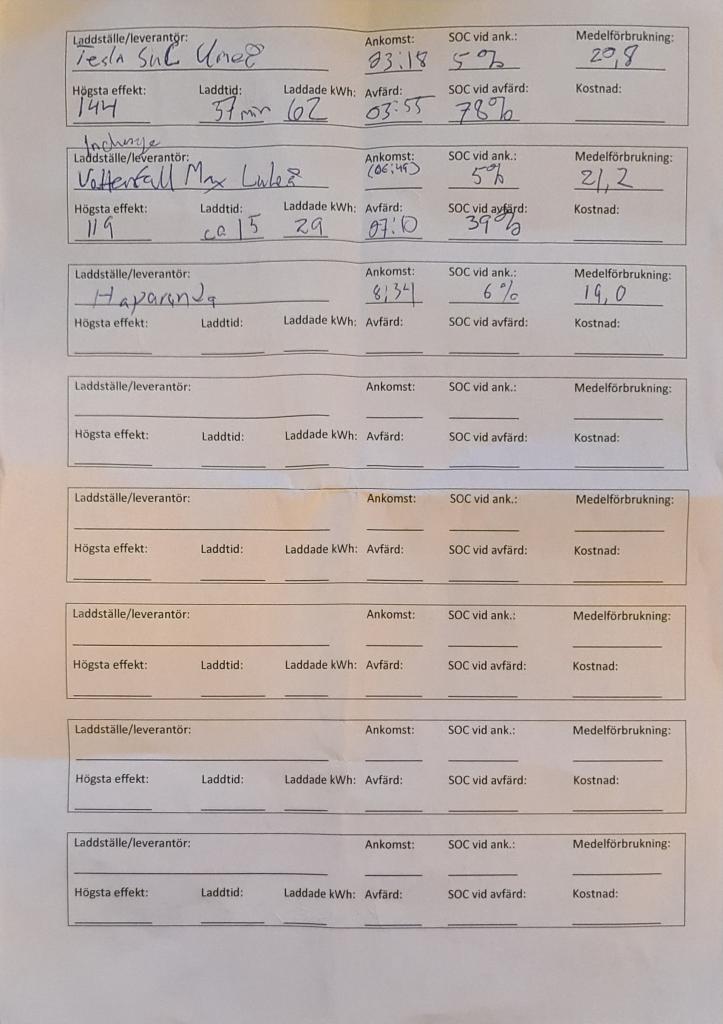 Laddställe/leverantör: Ankomst: SOC vid ank.: Medelförbrukning:
Tesla SuC Umeå 03:18 5% 20,8
Högsta effekt: Laddtid: Laddade kWh: Avfärd: SOC vid avfärd: Kostnad:
144 37 min 62 03:55 78%
Incharge
Laddställe/leverantör: Ankomst: SOC vid ank.: Medelförbrukning:
Vattenfall Max Luleå (06:45) 5% 21,2
Högsta effekt: Laddtid: Laddade kWh: Avfärd: SOC vid avfärd: Kostnad:
119 ca 15 29 07:10 39%
Laddställe/leverantör: Ankomst: SOC vid ank.: Medelförbrukning:
Haparanda 8:34 6% 19,0
Högsta effekt: Laddtid: Laddade kWh: Avfärd: SOC vid avfärd: Kostnad:
Laddställe/leverantör: Ankomst: SOC vid ank.: Medelförbrukning:
Högsta effekt: Laddtid: Laddade kWh: Avfärd: SOC vid avfärd: Kostnad:
Laddställe/leverantör: Ankomst: SOC vid ank.: Medelförbrukning:
Högsta effekt: Laddtid: Laddade kWh: Avfärd: SOC vid avfärd: Kostnad:
Laddställe/leverantör: Ankomst: SOC vid ank.: Medelförbrukning:
Högsta effekt: Laddtid: Laddade kWh: Avfärd: SOC vid avfärd: Kostnad:
Laddställe/leverantör: Ankomst: SOC vid ank.: Medelförbrukning:
Högsta effekt: Laddtid: Laddade kWh: Avfärd: SOC vid avfärd: Kostnad:
Laddställe/leverantör: Ankomst: SOC vid ank.: Medelförbrukning:
Högsta effekt: Laddtid: Laddade kWh: Avfärd: SOC vid avfärd: Kostnad: